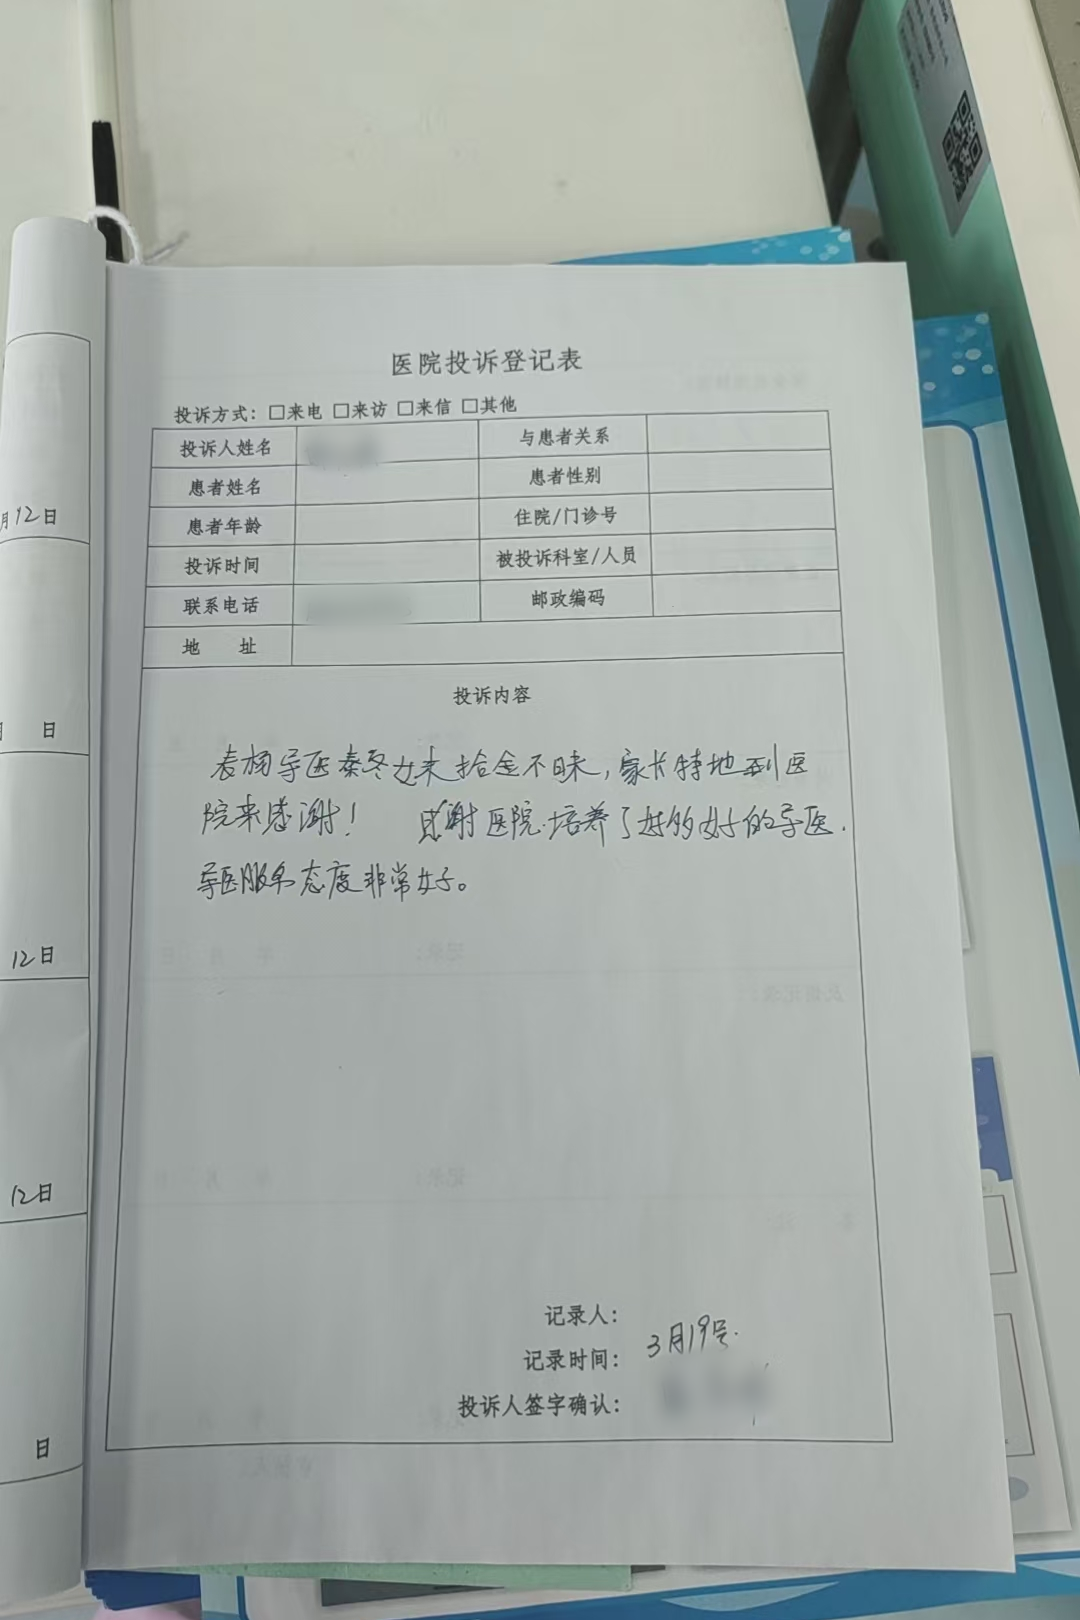 医院投诉登记表
投诉方式：□来电 □来访 □来信 □其他
投诉人姓名 与患者关系
患者姓名 患者性别
患者年龄 住院/门诊号
投诉时间 被投诉科室/人员
联系电话 邮政编码
地 址
投诉内容
表杨导医秦冬女来拾金不昧，家长特地到医
院来感谢！ 感谢医院培养了这么好的导医.
导医服务态度非常好。
记录人：
记录时间： 3月19号.
投诉人签字确认：
月12日
日
12日
12日
日